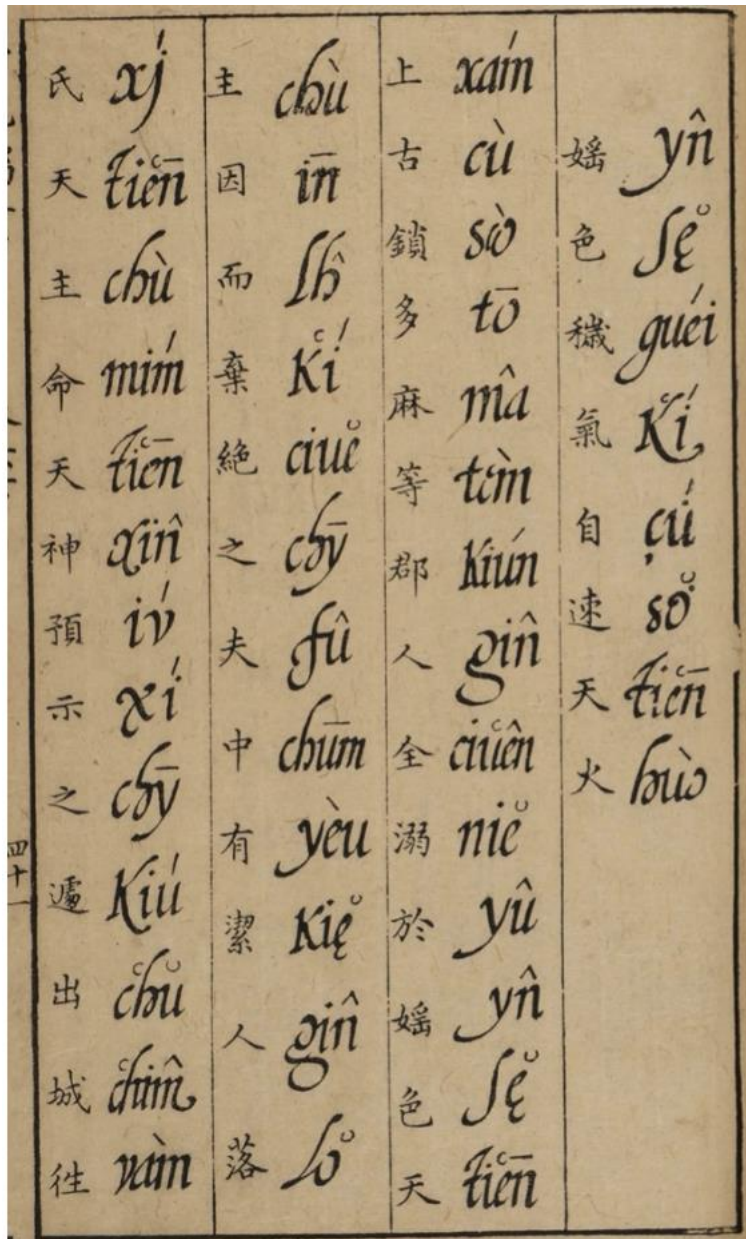 媱色穢氣自速天火
yn̂ sę̊ guéi k̔í çú sŏ̤ t̔iēn huò
上古鎖多麻等郡人全溺於媱色天
xám cù sò tō mâ tèm kiún gîn ciûên niĕ yû yn̂ sę̆ t̔iēn
主因而棄絶之夫中有潔人落
chù īn lĥ k̔í ciuĕ chȳ fû chūm yèu kię̆ gîn lŏ
氏天主命天神預示之遽出城徃
xí t̔iēn chù mím t̔iēn xîn iú xí chȳ kiú c̔hŭ c̔hîm vàm
四十一